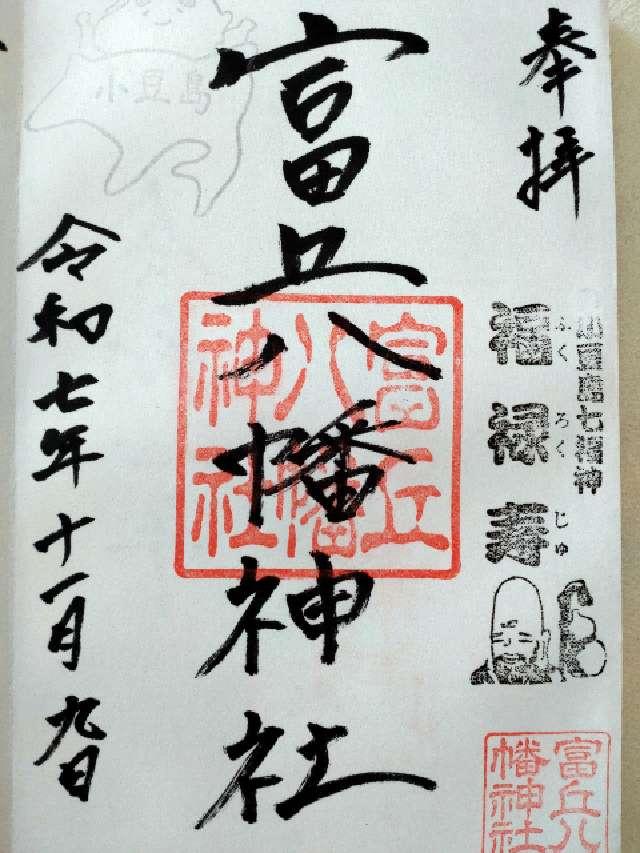 奉拝
小豆島七福神
福禄寿
ふくろくじゅ
富丘八幡神社
富丘八幡神社
富丘八幡神社
小豆島
令和七年十一月九日